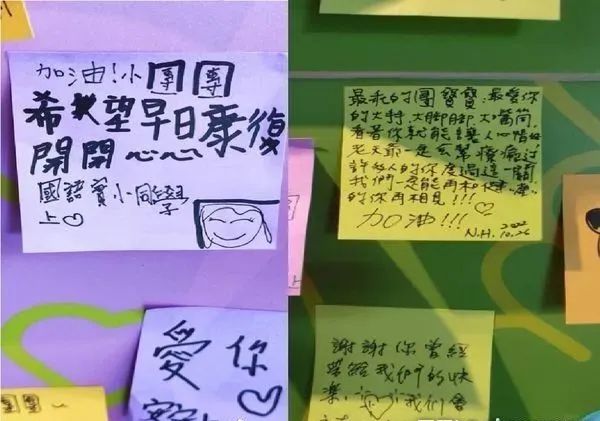 加油!小團團
希望早日康復
開開心心
國語實小同學
上♡
愛你
♡
團團~
最乖的團寶寶,最愛你
的大,大腳腳,大嘴筒,
看著你就能讓人心情好
老天爺一定會幫療癒过
許多人的你度過這一關
我們一定能再和健康
的你再相見!!!♡
加油!!!
2022
N.H. 10.26
謝謝你曾經
帶給我們的快
樂,我們會